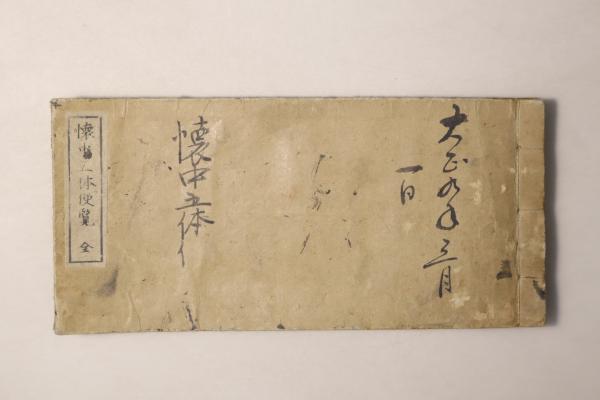 大正九年三月
一日
懐中五体
懐中五体便覧 全